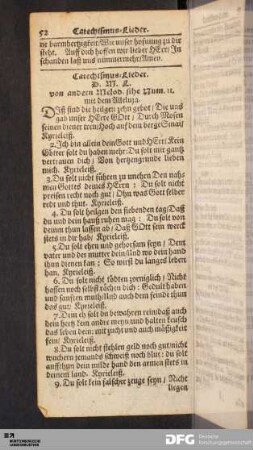 52 Catechismus-Lieder.
ne barmhertzigkeit/Wie unser hofnung zu dir
stehe. Auff dich hoffen wir lieber HErr/In
schanden laß uns nimmermehr/Amen.
Catechismus-Lieder.
D. M. L.
von andern Melod. sihe Num. 11.
mit dem Alleluja.
DIß sind die heilgen zehn gebot/Die uns
gab unser HErre GOtt/Durch Mosen
seinen diener treu/Hoch auf dem berge Sinai/
Kyrieleiß.
2. Ich bin allein dein Gott und HErr/Kein
Götter solt du haben mehr: Du solt mir gantz
vertrauen dich/Von hertzen grunde lieben
mich. Kyrieleiß.
3. Du solt nicht führen zu unehrn Den nah-
men Gottes deines HErrn: Du solt nicht
preisen recht noch gut/Ohn was Gott selber
redt und thut. Kyrieleiß.
4. Du solt heilgen den siebenden tag/Daß
du und dein hauß ruhen mag: Du solt von
deinem thun lassen ab/Daß GOtt sein werck
in dir hab/Kyrieleiß.
5. Du solt ehrn und gehorsam seyn/Dem
vater und der mutter dein/Und wo dein hand
ihnn dienen kan: So wirst du langes leben
han. Kyrieleiß.
6. Du solt nicht tödten zorniglich/Nicht
hassen noch selbst rächen dich: Gedult haben
und sanften muth/Und auch dem feinde thun
das gut/Kyrieleiß.
7. Dein eh solt du bewahren rein/daß auch
dein hertz kein andre meyn/und halten keusch
das leben dein/mit zucht und auch mäßigkeit
fein/Kyrieleiß.
8. Du solt nicht stehlen geld noch gut/nicht
wuchern jemands schweiß noch blut: du solt
aufthun dein milde hand den armen stets in
deinem land. Kyrieleiß.
9. Du solt kein falscher zeuge seyn/Nicht
liegen
DFG Deutsche
Forschungsgemeinschaft